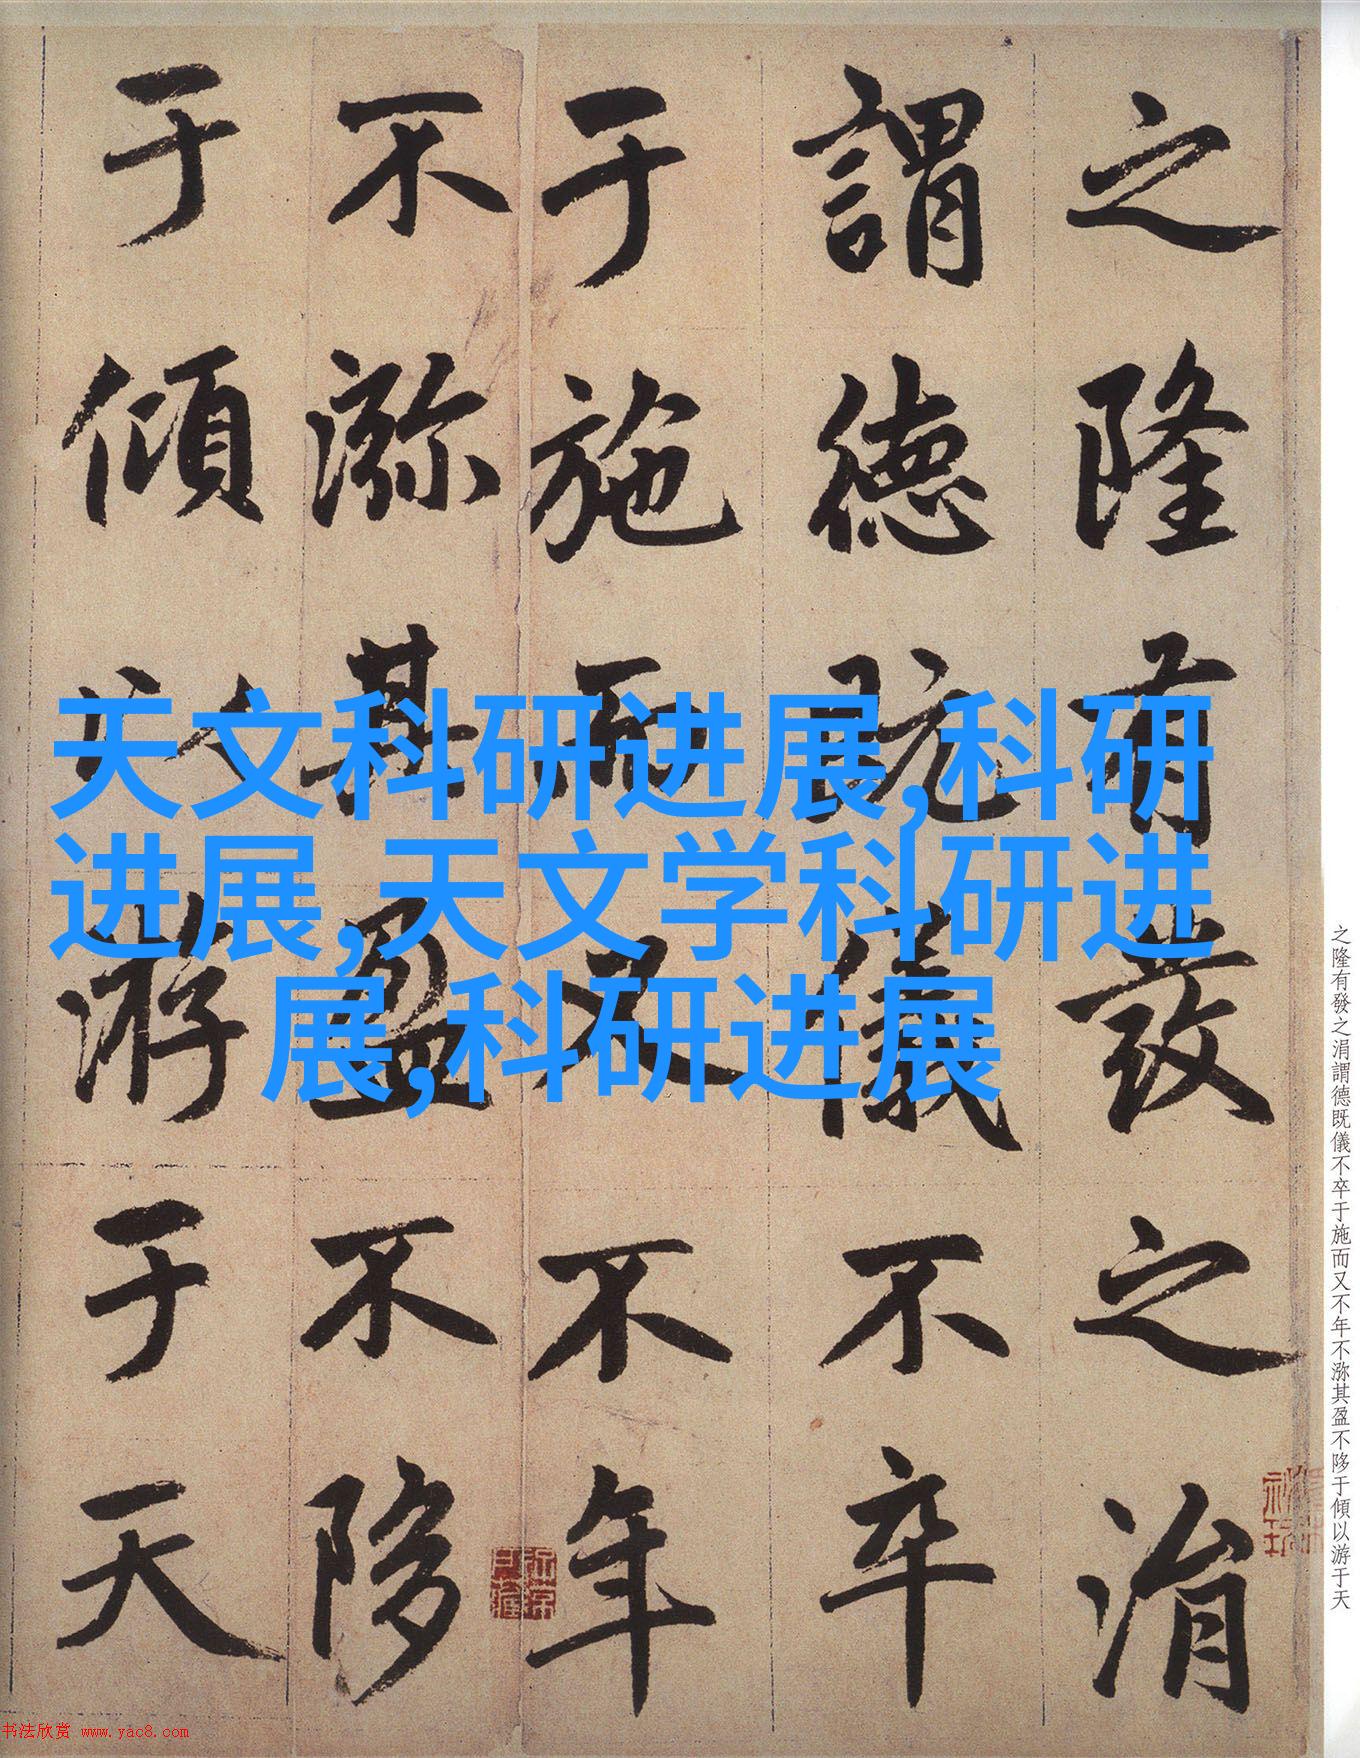 之隆有發之涓
謂德既儀不卒
于施而又不年
不㳽其盈不陊
于傾以游于天
天文科研进展,科研
进展,天文学科研进
展,科研进展
之隆有發之涓謂德既儀不卒于施而又不年不㳽其盈不陊于傾以游于天
书法欣赏 www.yac8.com